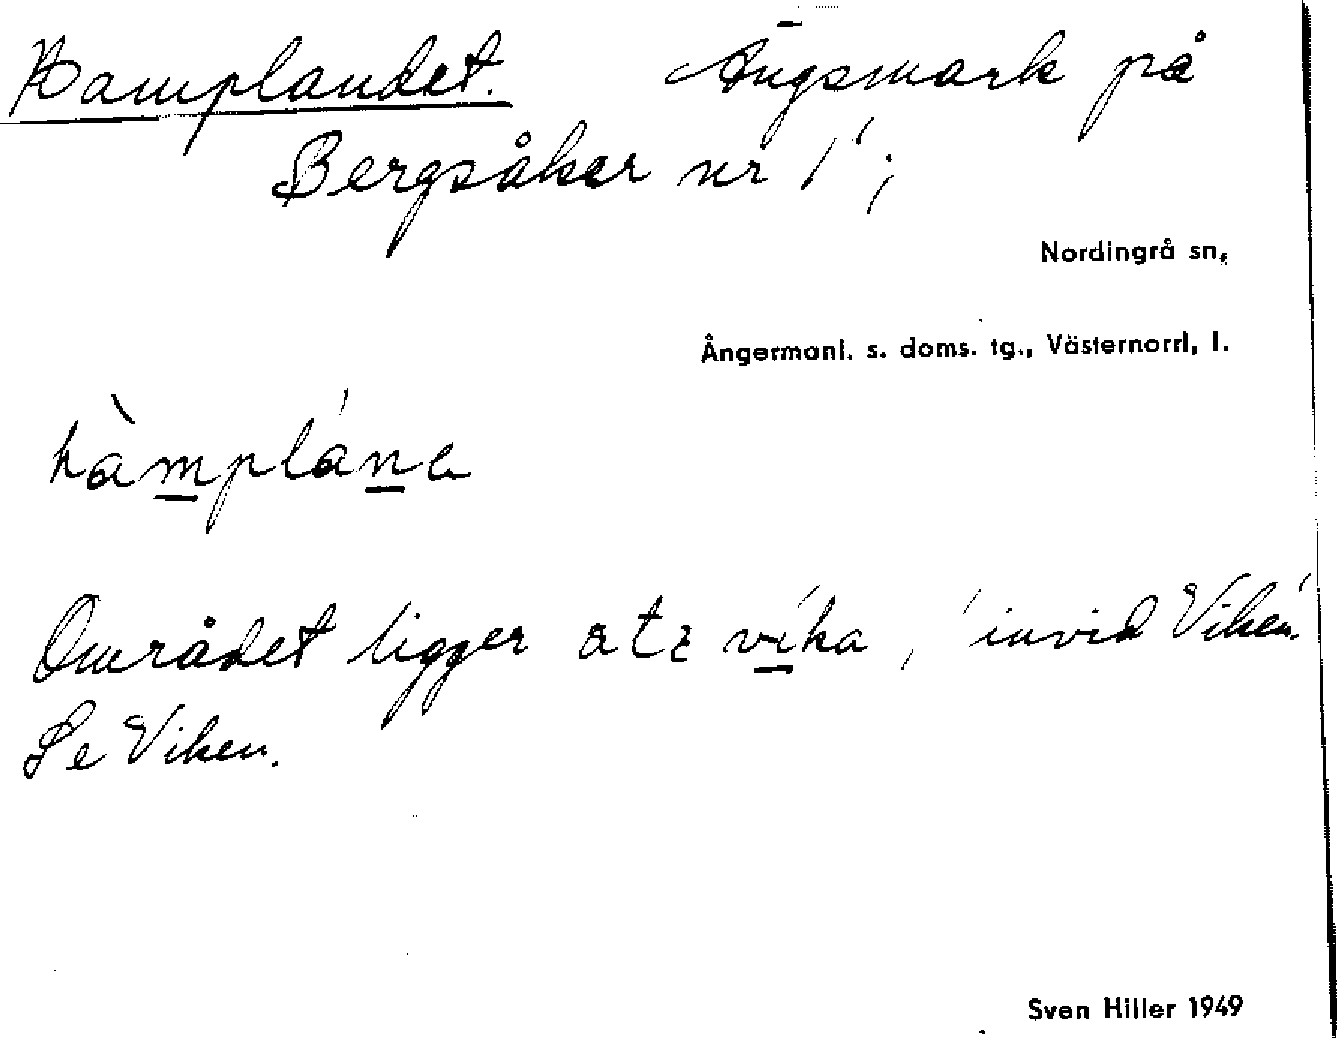 Hamplandet. Ängsmark på
Bergsåker nr 1;
Nordingrå sn,
Ångermanl. s. doms. tg., Västernorrl, l.
hàmplána
Området ligger atε víka, 'invid Viken'.
Se Viken.
Sven Hiller 1949